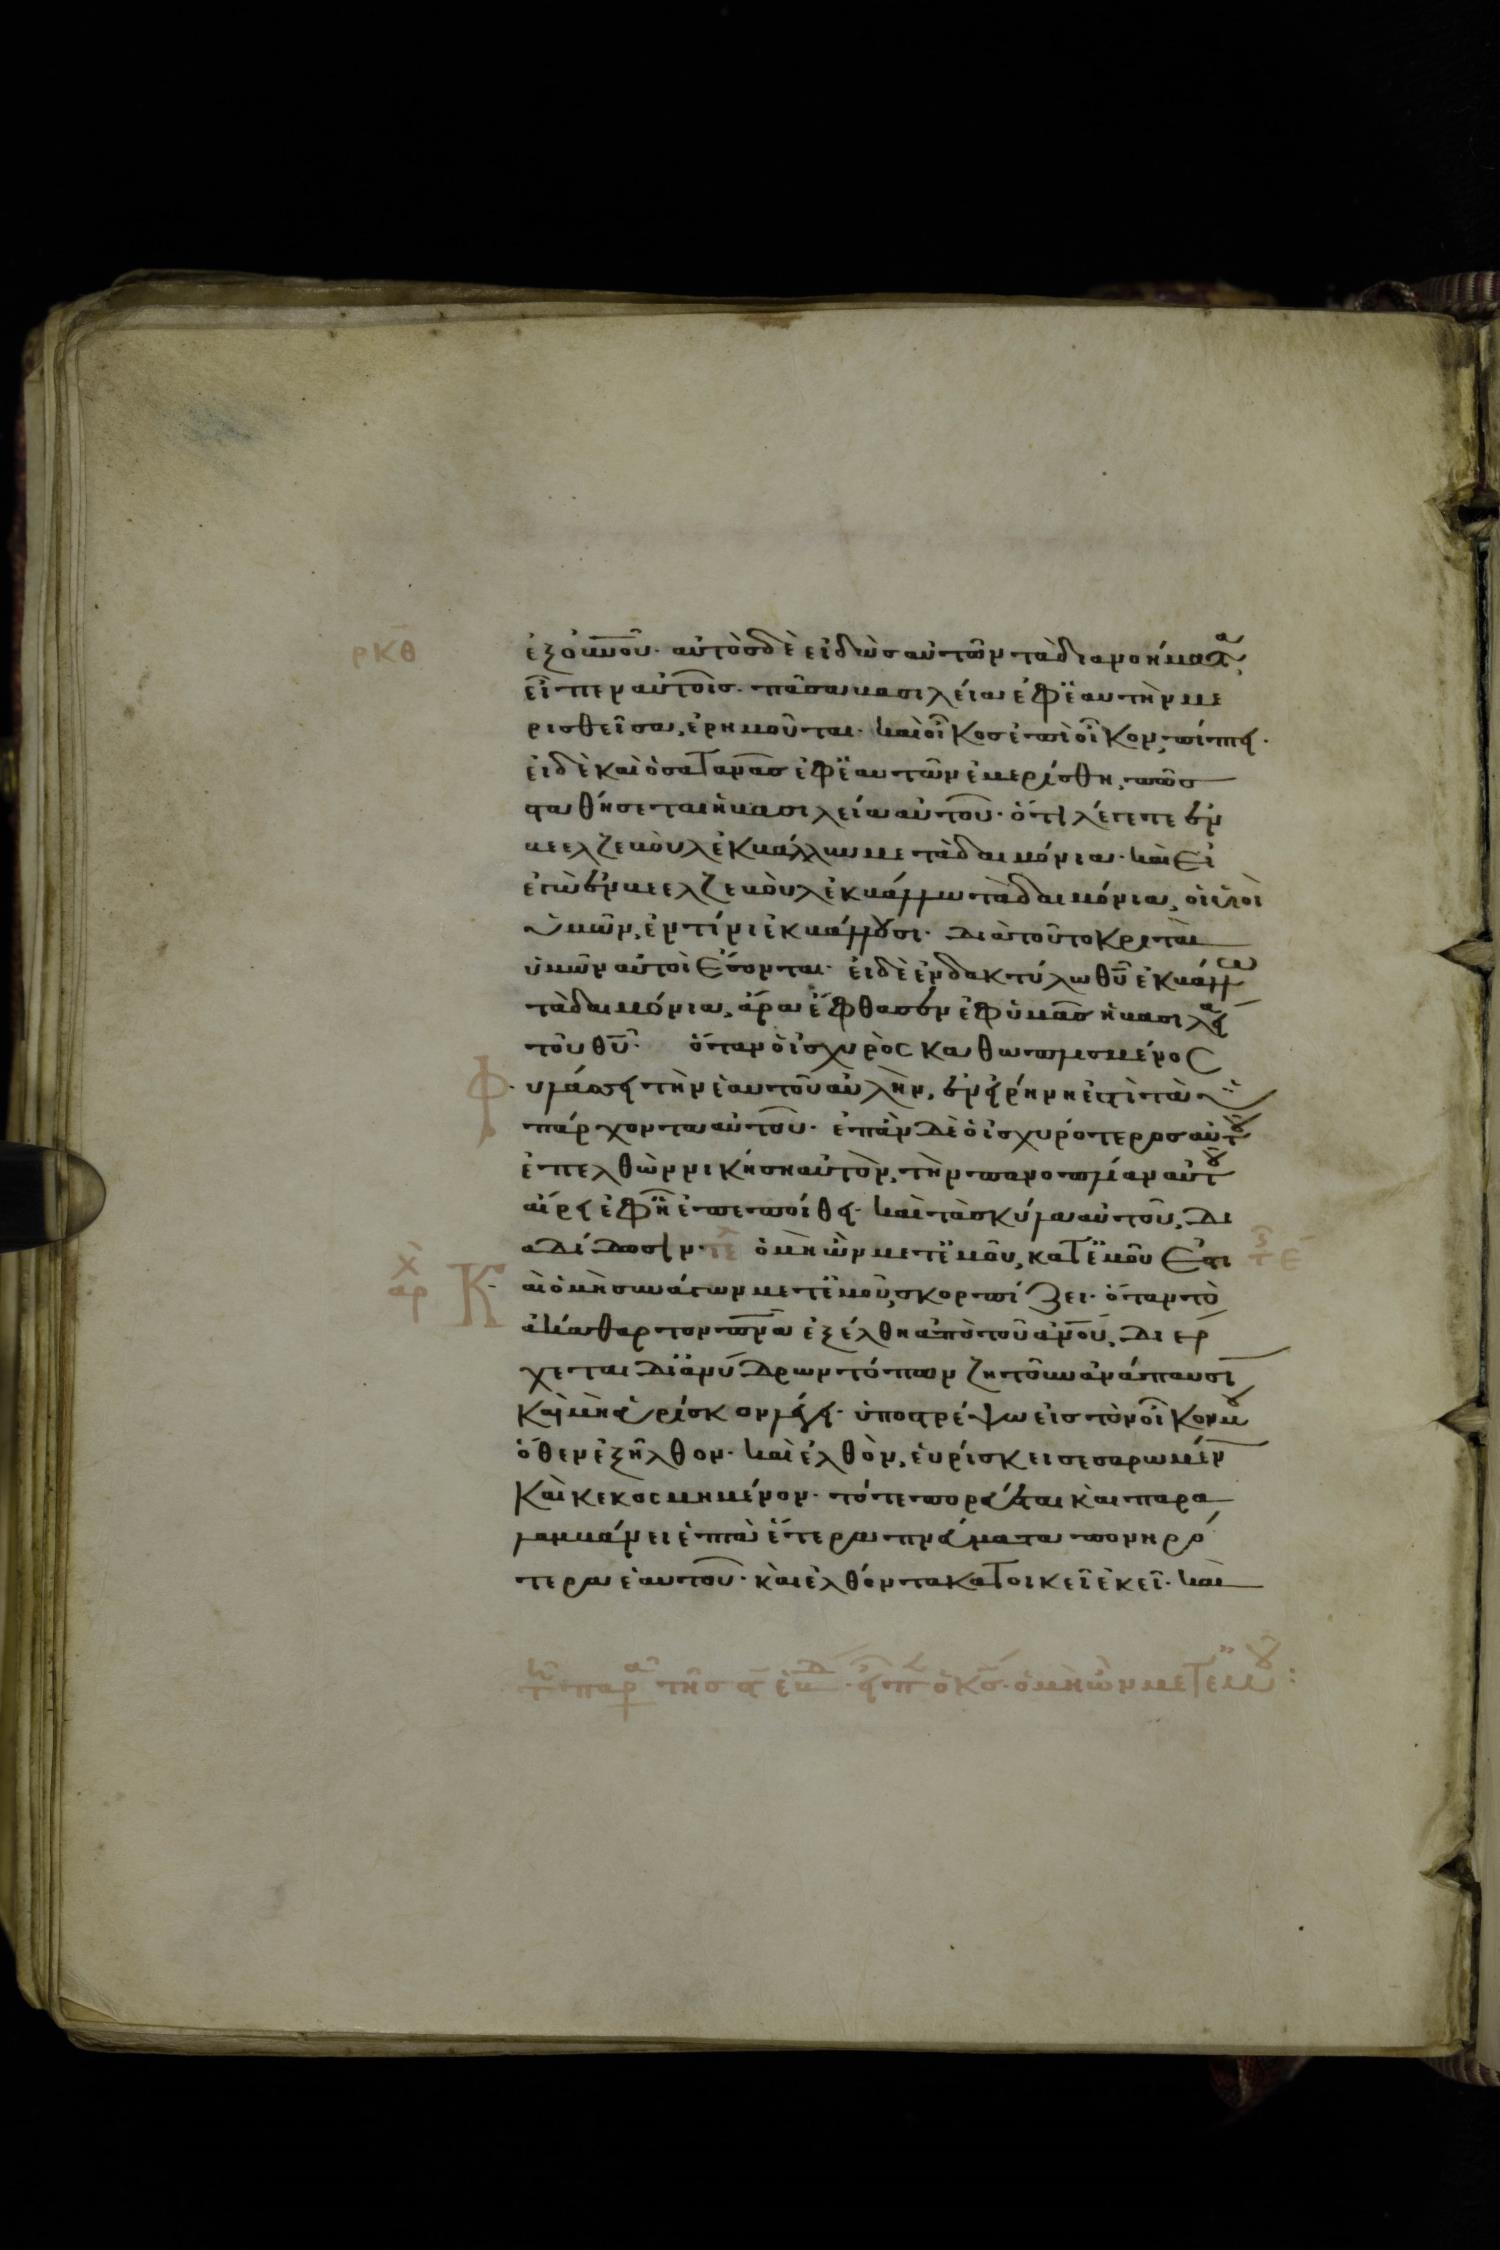 ρκθ
ἐξ οὐνοῦ· αὐτὸς δὲ εἰδὼς αὐτῶν τὰ διανοήματα,
εἶπεν αὐτοῖς· πᾶσα βασιλεία ἐφ' ἑαυτὴν με
ρισθεῖσα, ἐρημοῦται· καὶ οἶκος ἐπὶ οἶκον, πίπτει·
εἰ δὲ καὶ ὁ σατανᾶς ἐφ' ἑαυτὸν ἐμερίσθη, πῶς
σταθήσεται ἡ βασιλεία αὐτοῦ· ὅτι λέγετε ἐν
βεελζεβοὺλ ἐκβάλλειν με τὰ δαιμόνια· καὶ εἰ
ἐγὼ ἐν βεελζεβοὺλ ἐκβάλλω τὰ δαιμόνια, οἱ υἱοὶ
ὑμῶν, ἐν τίνι ἐκβάλλουσι· διὰ τοῦτο κριταὶ
ὑμῶν αὐτοὶ ἔσονται· εἰ δὲ ἐν δακτύλω θῦ ἐκβάλλω
τὰ δαιμόνια, ἄρα ἔφθασεν ἐφ' ὑμᾶς ἡ βασιλεία
τοῦ θῦ· ὅταν ὁ ἰσχυρὸς καθωπλισμένος
φυλάσσει τὴν ἑαυτοῦ αὐλὴν, ἐν εἰρήνη ἐστὶ τὰ ὑ
πάρχοντα αὐτοῦ· ἐπὰν δὲ ὁ ἰσχυρότερος αὐτοῦ
ἐπελθὼν νικήση αὐτὸν, τὴν πανοπλίαν αὐτοῦ
αἴρει ἐφ' ἧ ἐπεποίθει· καὶ τὰ σκύλα αὐτοῦ, δι
αδίδωσιν· τε ὁ μὴ ὢν μετ' ἐμοῦ, κατ' ἐμοῦ ἐστι
ἀρχ Καὶ ὁ μὴ συνάγων μετ' ἐμοῦ, σκορπίζει· ὅταν τὸ
ἀκάθαρτον πνα ἐξέλθη ἀπὸ τοῦ ἀνοῦ, διέρ
χεται δι' ἀνύδρων τόπων ζητοῦν ἀνάπαυσι
καὶ μὴ εὑρίσκον λέγει· ὑποστρέψω εἰς τὸν οἶκόν μου
ὅθεν ἐξῆλθον· καὶ ἐλθὸν, εὑρίσκει σεσαρωμέν
καὶ κεκοσμημένον· τότε πορεύεται καὶ παρα
λαμβάνει ἑπτὰ ἕτερα πνεύματα πονηρό
τερα ἑαυτοῦ· καὶ ἐλθόντα κατοικεῖ ἐκεῖ· καὶ
ὁ κς· ὁ μὴ ὢν μετ' ἐμοῦ: